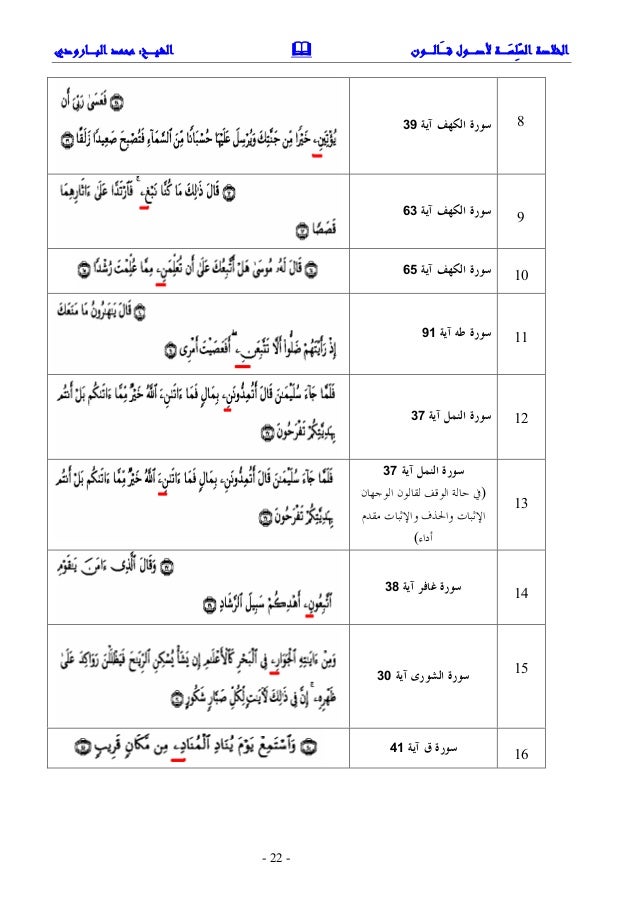 الخلاصة السَّلِسَـة لأصـول قَـالـون 🕮 الشيـخ: محمد البـارودي
8
سورة الكهف آية 39
فَعَسَىٰ رَبِّيَ أَن
يُؤْتِيَنِۦ خَيْرًا مِّن جَنَّتِكَ وَيُرْسِلَ عَلَيْهَا حُسْبَانًا مِّنَ السَّمَآءِ فَتُصْبِحَ صَعِيدًا زَلَقًا
9
سورة الكهف آية 63
قَالَ ذَٰلِكَ مَا كُنَّا نَبْغِۦ فَارْتَدَّا عَلَىٰ ءَاثَارِهِمَا
قَصَصًا
10
سورة الكهف آية 65
قَالَ لَهُۥ مُوسَىٰ هَلْ أَتَّبِعُكَ عَلَىٰ أَن تُعَلِّمَنِۦ مِمَّا عُلِّمْتَ رُشْدًا
11
سورة طه آية 91
قَالَ يَٰهَٰرُونُ مَا مَنَعَكَ
إِذْ رَأَيْتَهُمْ ضَلُّوا أَلَّا تَتَّبِعَنِۦ أَفَعَصَيْتَ أَمْرِي
12
سورة النمل آية 37
فَلَمَّا جَآءَ سُلَيْمَٰنَ قَالَ أَتُمِدُّونَنِۦ بِمَالٍ فَمَا ءَاتَىٰنِۦَ اللَّهُ خَيْرٌ مِّمَّا ءَاتَىٰكُم بَلْ أَنتُم
بِهَدِيَّتِكُمْ تَفْرَحُونَ
13
سورة النمل آية 37
(في حالة الوقف لقالون الوجهان
الإثبات والحذف والإثبات مقدم
أداء)
فَلَمَّا جَآءَ سُلَيْمَٰنَ قَالَ أَتُمِدُّونَنِۦ بِمَالٍ فَمَا ءَاتَىٰنِۦَ اللَّهُ خَيْرٌ مِّمَّا ءَاتَىٰكُم بَلْ أَنتُم
بِهَدِيَّتِكُمْ تَفْرَحُونَ
14
سورة غافر آية 38
وَقَالَ الَّذِي ءَامَنَ يَٰقَوْمِ
اتَّبِعُونِۦ أَهْدِكُمْ سَبِيلَ الرَّشَادِ
15
سورة الشورى آية 30
وَمِنْ ءَايَٰتِهِ الْجَوَارِۦ فِي الْبَحْرِ كَالْأَعْلَٰمِ إِن يَشَأْ يُسْكِنِ الرِّيَٰحَ فَيَظْلَلْنَ رَوَاكِدَ عَلَىٰ
ظَهْرِهِۦ إِنَّ فِي ذَٰلِكَ لَآيَٰتٍ لِّكُلِّ صَبَّارٍ شَكُورٍ
16
سورة ق آية 41
وَاسْتَمِعْ يَوْمَ يُنَادِ الْمُنَادِۦ مِن مَّكَانٍ قَرِيبٍ
- 22 -